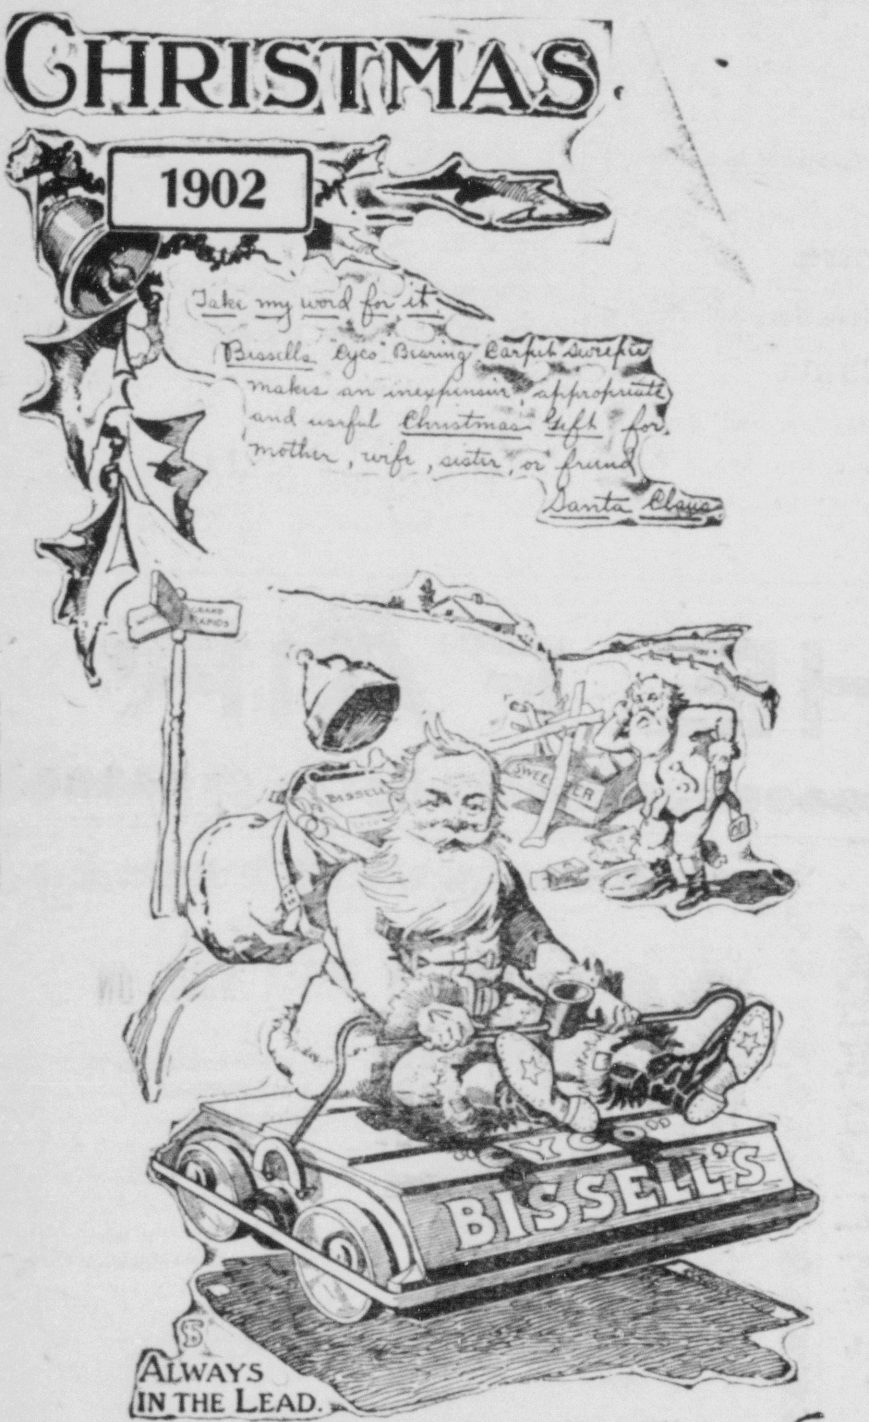 CHRISTMAS
1902
Take my word for it
Bissells "Cyco" Bearing Carpet Sweeper
makes an inexpensive, appropriate
and useful Christmas Gift for
mother, wife, sister, or friend
Santa Claus
GRAND
RAPIDS
BISSELL
SWEE
ZER
"CYCO"
BISSELL'S
ALWAYS
IN THE LEAD.